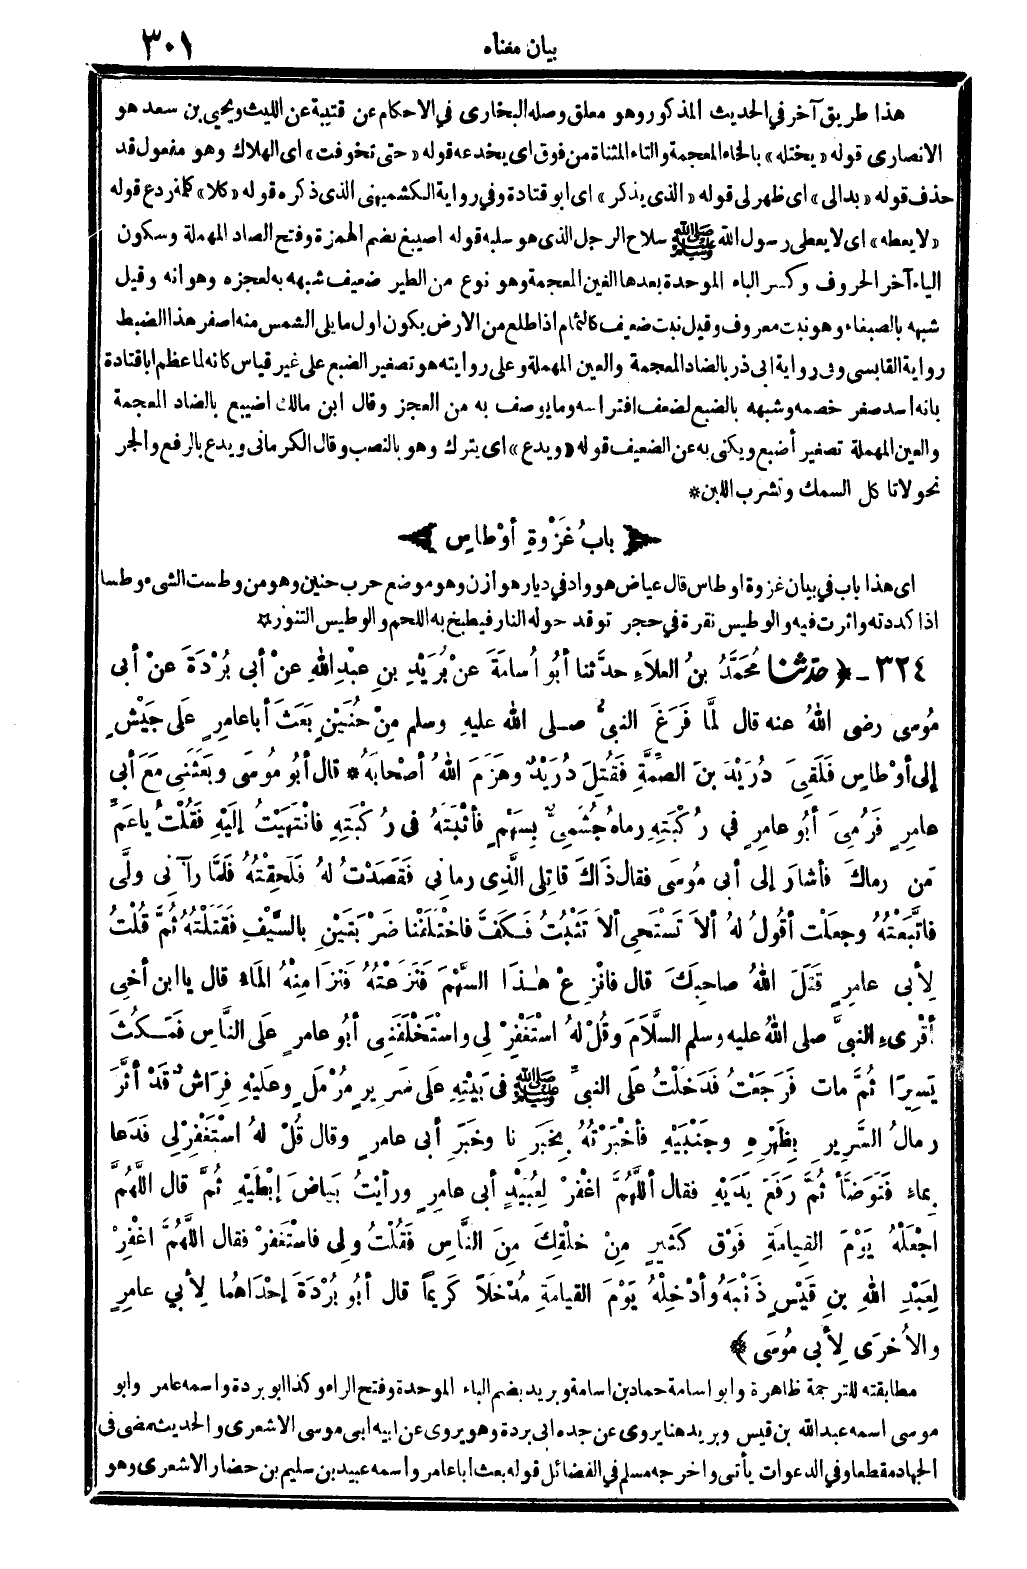 بيان مغناه ٣٠١
هذا طريق آخر في الحديث المذكور وهو معلق وصله البخارى في الاحكام عن قتيبة عن الليث ويحيى بن سعد هو
الانصارى قوله «يختله» بالخاء المعجمة والتاء المثناة من فوق اى يخدعه قوله «حتى تخوفت» اى الهلاك وهو مفعول قد
حذف قوله «بدالى» اى ظهر لى قوله «الذى يذكر» اى ابو قتادة وفي رواية الكشميهنى الذى ذكره قوله «كلا» كلمة ردع قوله
«لا يعطه» اى لا يعطى رسول الله ﷺ سلاح الرجل الذى هو سلبه قوله اصيبغ بضم الهمزة وفتح الصاد المهملة وسكون
الياء آخر الحروف وكسر الباء الموحدة بعدها الغين المعجمة وهو نوع من الطير ضعيف شبهه به لعجزه وهوانه وقيل
شبهه بالصبغاء وهو نبت معروف وقيل نبت ضعيف كالثمام اذا طلع من الارض يكون اول ما يلى الشمس منه اصفر هذا الضبط
رواية القابسى وفى رواية ابى ذر بالضاد المعجمة والعين المهملة وعلى روايته هو تصغير الضبع على غير قياس كانه لما عظم ابا قتادة
بانه اسد صغر خصمه وشبهه بالضبع لضعف افتراسه وما يوصف به من العجز وقال ابن مالك اضيبع بالضاد المعجمة
والعين المهملة تصغير أضبع ويكنى به عن الضعيف قوله «ويدع» اى يترك وهو بالنصب وقال الكرمانى ويدع بالرفع والجر
نحو لا تاكل السمك وتشرب اللبن *
باب غَزْوةِ أوْطاسٍ
اى هذا باب في بيان غزوة اوطاس قال عياض هو واد في ديار هوازن وهو موضع حرب حنين وهو من وطست الشىء وطسا
اذا كددته واثرت فيه والوطيس نقرة في حجر توقد حوله النار فيطبخ به اللحم والوطيس التنور *
٣٢٤ - ﴿ حدّثنا مُحَمَّدُ بنُ العلاءِ حدثنا أبُو أُسامَةَ عنْ بُرَيْدِ بنِ عبْدِ اللهِ عنْ أبى بُرْدَةَ عنْ أبى
مُوسى رضى اللهُ عنه قال لمَّا فَرَغَ النبىُّ صلى الله عليهِ وسلم مِنْ حُنَيْنٍ بَعَثَ أباعامِرٍ علَى جَيْشٍ
إلى أوْطاسٍ فَلَقِىَ دُرَيْدَ بنَ الصِّمَّةِ فَقُتِلَ دُرَيْدٌ وهَزَمَ اللهُ أصْحابَهُ * قال أبُو مُوسَى وبَعَثَنِى مَعَ أبى
عامِرٍ فَرُمِىَ أبُو عامِرٍ في رُكْبَتِهِ رماهُ جُشَمِىٌّ بِسَهْمٍ فأثْبَتَهُ فى رُكْبَتِهِ فانْتَهَيْتُ إلَيْهِ فَقُلْتُ ياعَمِّ
مَن رماكَ فأشارَ إلى أبى مُوسَى فقال ذَاكَ قاتِلِى الَّذِى رمانى فَقَصَدْتُ لهُ فَلَحِقْتُهُ فَلمَّا رآنِى ولَّى
فاتَّبَعْتُهُ وجعلْت أقُولُ لهُ ألاَ تَسْتَحِى ألاَ تَثْبُتُ فَكَفَّ فاخْتَلَفْنا ضَرْبَتَيْنِ بالسَّيْفِ فَقَتَلْتُهُ ثُمَّ قُلْتُ
لِأبى عامِرٍ قَتَلَ اللهُ صاحِبَكَ قال فانْزِعْ هٰذَا السَّهْمَ فَنَزَعْتُهُ فَنَزَا مِنْهُ المَاءُ قال ياابن أخِى
أقْرِىءِ النبىَّ صلى اللهُ عليه وسلم السَّلاَمَ وقُلْ لهُ اسْتَغْفِرْ لِى واسْتَخْلَفَنِى أبُو عامرٍ علَى النَّاسِ فَمَكُثَ
يَسِيرًا ثُمَّ مات فَرَجَعْتُ فَدَخَلْتُ علَى النبىِّ ﷺ فى بَيْتِهِ علَى سَرِيرٍ مُرْمَلٍ وعلَيْهِ فِرَاشٌ قَدْ أثَّرَ
رمالُ السَّرِيرِ بِظَهْرِهِ وجَنْبَيْهِ فأخْبَرْتُهُ بِخَبَرِنا وخَبَرِ أبى عامرٍ وقال قُلْ لهُ اسْتَغْفِرْلِى فدَعا
بِماءٍ فَتَوَضَّأ ثُمَّ رَفَعَ يَدَيْهِ فقال أللّهُمَّ اغْفِرْ لِعُبَيْدٍ أبى عامرٍ ورأيْتُ بَياضَ إبْطَيْهِ ثُمَّ قال اللّهُمَّ
اجْعَلْهُ يَوْمَ القِيامَةِ فَوْقَ كَثِيرٍ مِنْ خلْقِكَ مِنَ النَّاسِ فَقُلْتُ ولى فاسْتَغفِرْ فقال اللّهُمَّ اغْفِرْ
لِعَبْدِ اللهِ بنِ قَيْسٍ ذَنْبَهُ وأدْخِلْهُ يَوْمَ القيامَةِ مُدْخَلاً كَرِيماً قال أبُو بُرْدَةَ إحْدَاهُما لِأبي عامِرٍ
والأُخرَى لِأبى مُوسَى ﴾
مطابقته للترجمة ظاهرة وابو اسامة حماد بن اسامة وبريد بضم الباء الموحدة وفتح الراء وكذا ابو بردة واسمه عامر وابو
موسى اسمه عبد الله بن قيس وبريد هنا يروى عن جده ابى بردة وهو يروى عن ابيه ابى موسى الاشعرى والحديث مضى فى
الجهاد مقطعا وفي الدعوات يأتى واخرجه مسلم في الفضائل قوله بعث اباعامر واسمه عبيد بن سليم بن حضار الاشعرى وهو